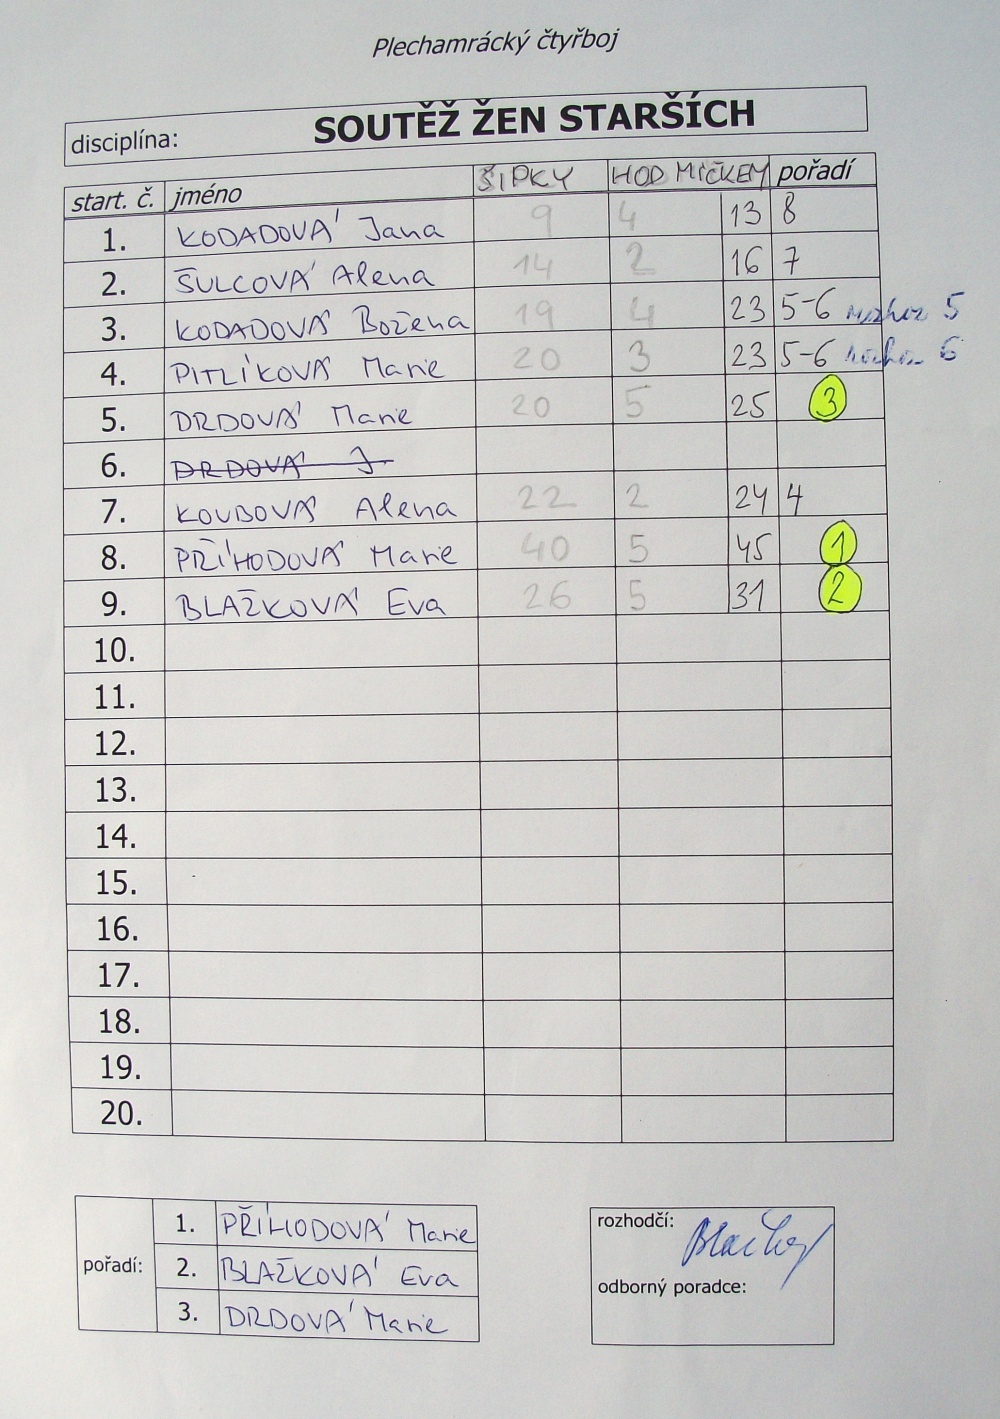 Plechamrácký čtyřboj
disciplína: SOUTĚŽ ŽEN STARŠÍCH
start. č. jméno ŠIPKY HOD MÍČKEM pořadí
1. KODADOVÁ Jana 9 4 13 8
2. ŠULCOVÁ Alena 14 2 16 7
3. KODADOVÁ Božena 19 4 23 5-6 rozhoz 5
4. PITLÍKOVÁ Marie 20 3 23 5-6 6
5. DRDOVÁ Marie 20 5 25 3
6. DRDOVÁ J
7. KOUBOVÁ Alena 22 2 24 4
8. PŘÍHODOVÁ Marie 40 5 45 1
9. BLAŽKOVÁ Eva 26 5 31 2
10.
11.
12.
13.
14.
15.
16.
17.
18.
19.
20.
pořadí:
1. PŘÍHODOVÁ Marie
2. BLAŽKOVÁ Eva
3. DRDOVÁ Marie
rozhodčí:
odborný poradce: